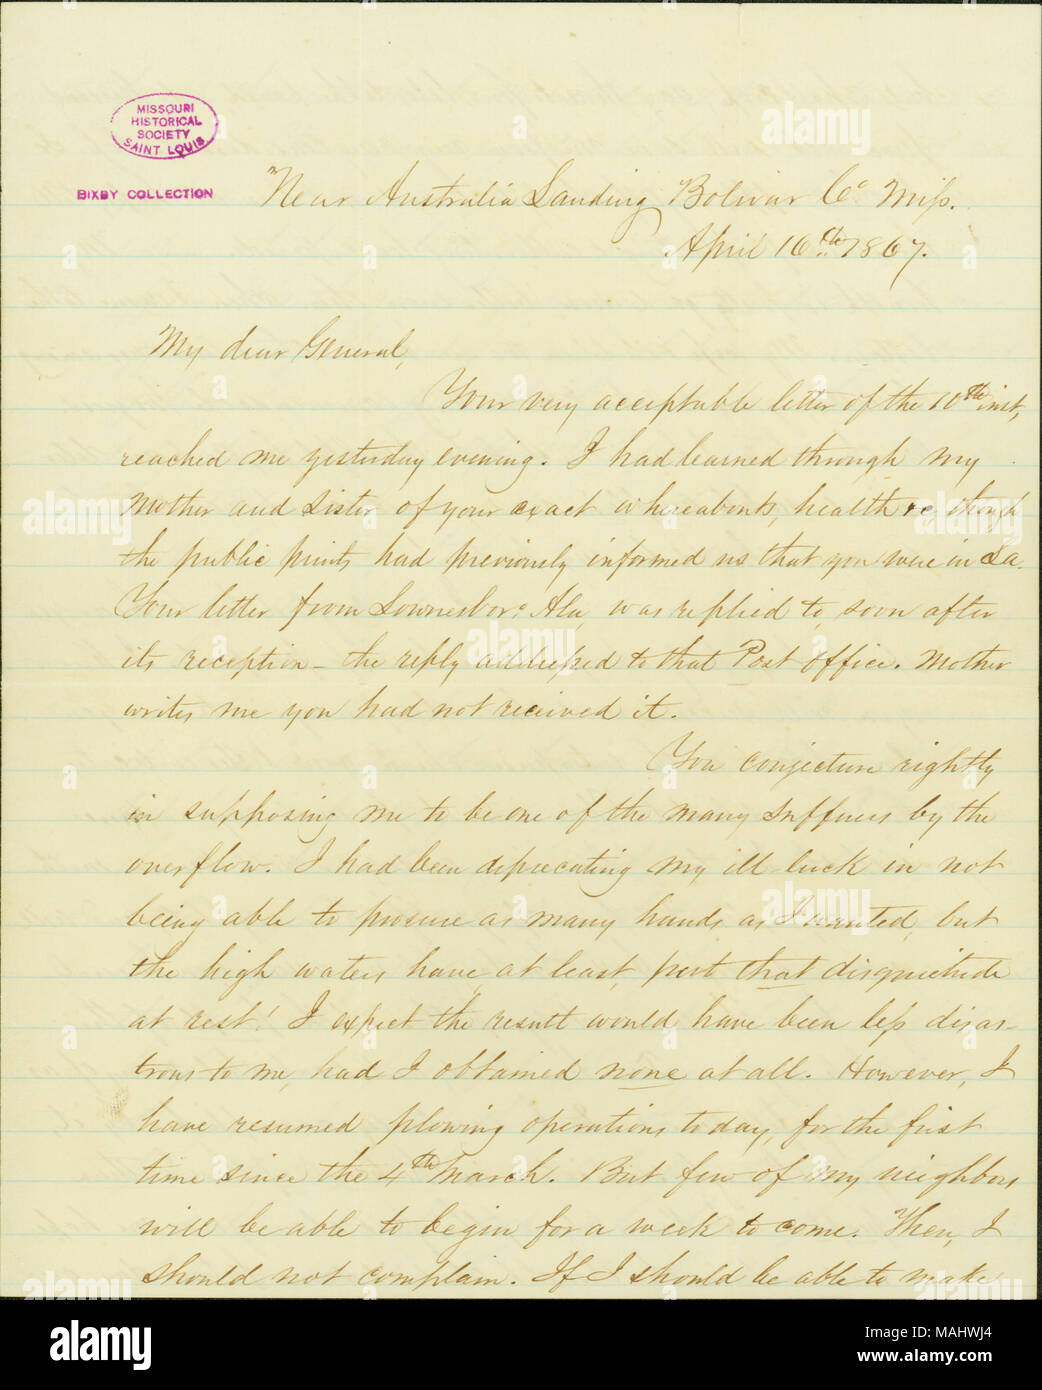 MISSOURI
HISTORICAL
SOCIETY
SAINT LOUIS
BIXBY COLLECTION
Near Australia Landing Bolivar Co Miss.
April 16th 1867.
My dear General,
Your very acceptable letter of the 10th inst,
reached me yesterday evening. I had learned through my
Mother and sister of your exact whereabouts, health &c, though
the public prints had previously informed us that you were in La.
Your letter from Lownesboro Ala, was replied to, soon after
its reception - the reply addressed to that Post office. Mother
writes me you had not received it.
You conjecture rightly
in supposing me to be one of the many sufferers by the
overflow. I had been deprecating my ill-luck in not
being able to procure as many hands as I wanted, but
the high waters have, at least, put that disquietude
at rest! I expect the result would have been less disas-
trous to me, had I obtained none at all. However, I
have resumed plowing operations today, for the first
time since the 4th March. But few of my neighbors
will be able to begin for a week to come. Then, I
should not complain. If I should be able to make
alamy
Image ID: MAHWJ4
www.alamy.com